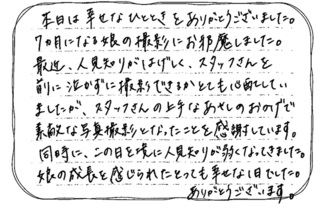 本日は幸せなひとときをありがとうございました。
7カ月になる娘の撮影にお邪魔しました。
最近、人見知りがはげしく、スタッフさんを
前に泣かずに撮影できるかとても心配してい
ましたが、スタッフさんの上手なあやしのおかげで
素敵な写真撮影となったことを感謝しています。
同時に、この日を境に人見知りが少なくなってきました。
娘の成長を感じられたとっても幸せな1日でした。
ありがとうございます。